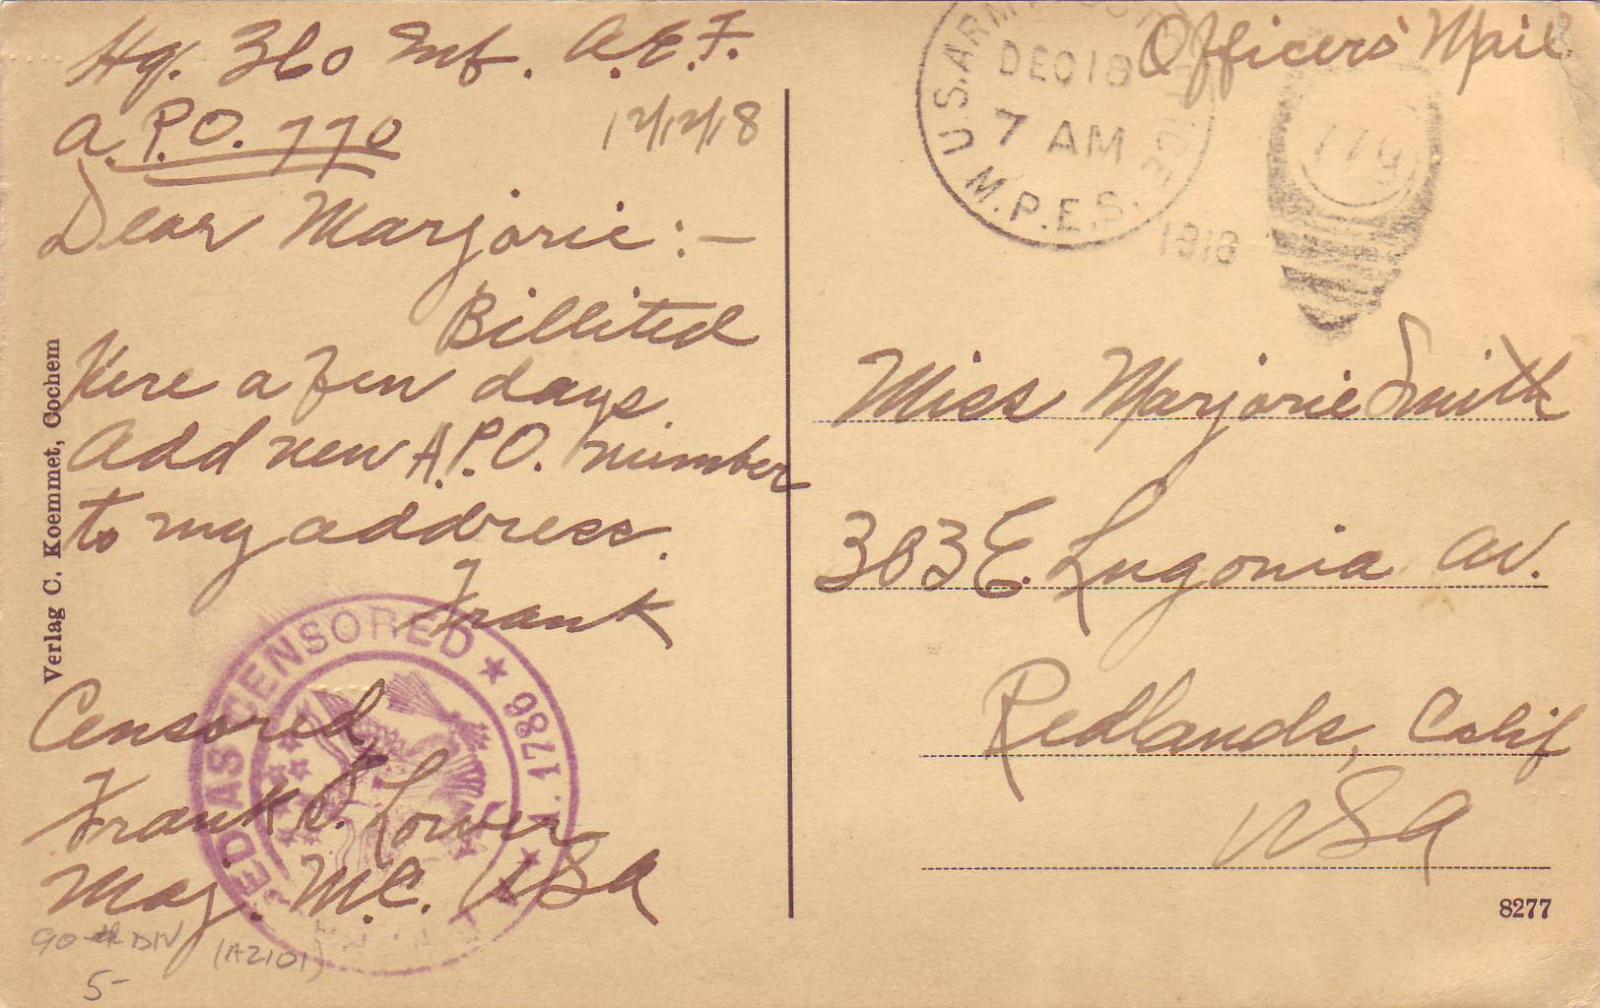 Hq. 360 Inf. A.E.F.
A.P.O. 770
12/12/18
Dear Marjorie:-
Billited
Here a few days
Add new A.P.O. number
to my address.
Frank
Censored
Frank P. Lower
Maj. M.C. USA
90th DIV
(A2101)
5-
Verlag C. Koemmet, Cochem
AS CENSORED ★ 1786
Officers' Mail
U.S. ARMY
DEC 18
7 AM
M.P.E.S.
1918
Miss Marjorie Smith
303 E. Lugonia Av.
Redlands, Calif
USA
8277